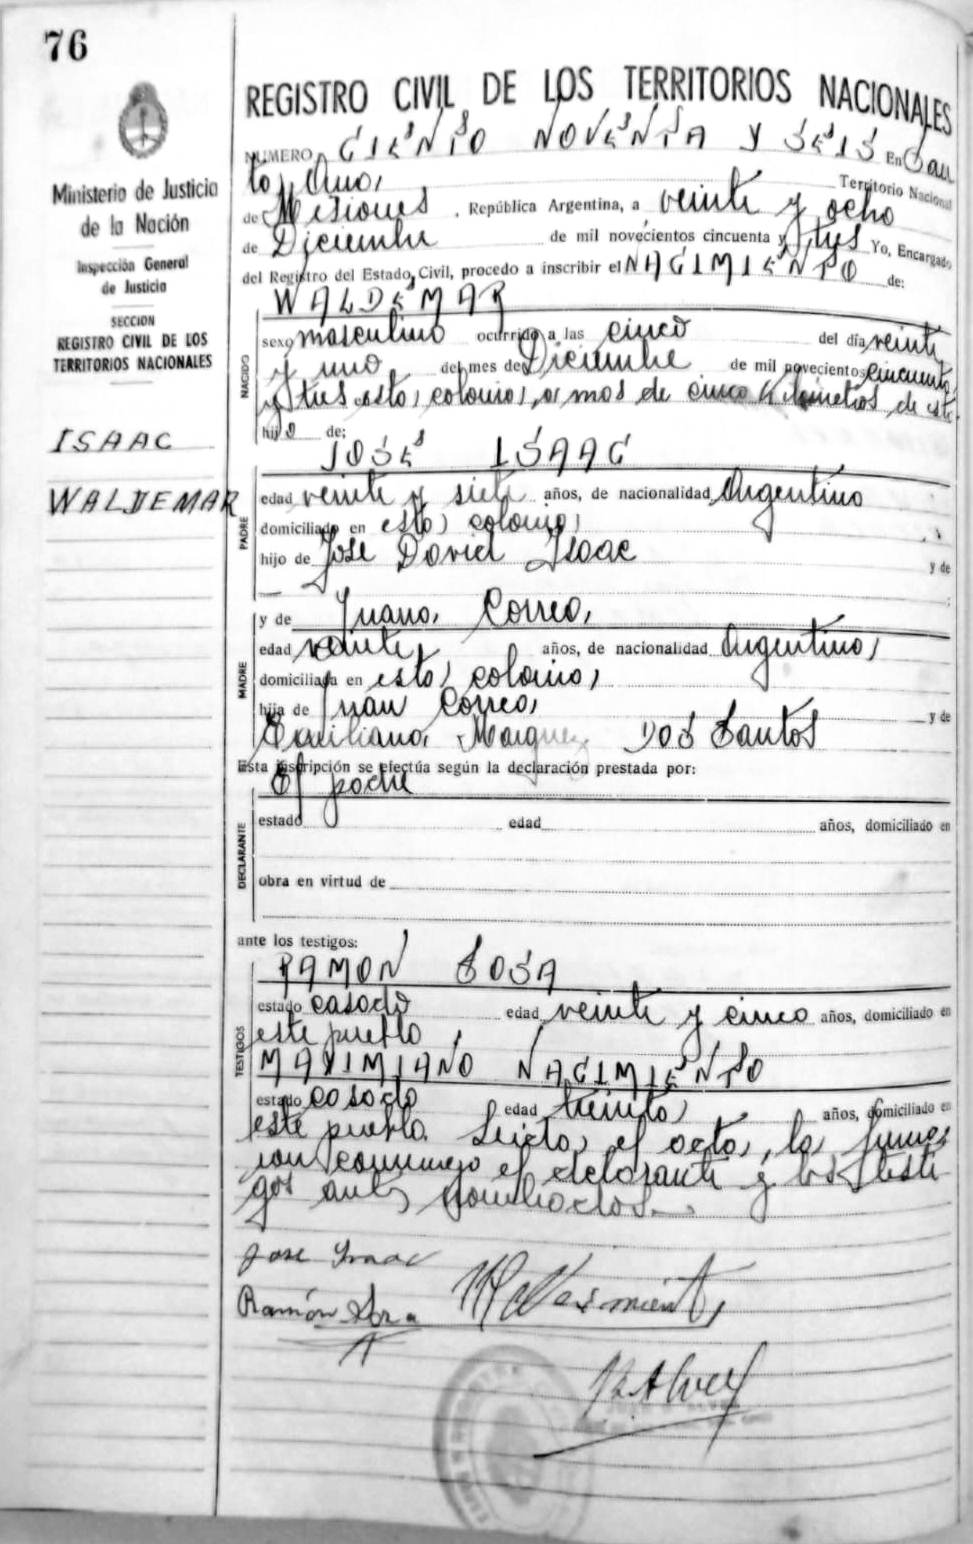 76
Ministerio de Justicia
de la Nación
Inspección General
de Justicia
SECCION
REGISTRO CIVIL DE LOS
TERRITORIOS NACIONALES
ISAAC
WALDEMAR
REGISTRO CIVIL DE LOS TERRITORIOS NACIONALES
NUMERO CIENTO NOVENTA Y SEIS En San
ta Ana, Territorio Nacional
de Misiones, República Argentina, a veinte y ocho
de Diciembre de mil novecientos cincuenta y tres Yo, Encargado
del Registro del Estado Civil, procedo a inscribir el NACIMIENTO de:
WALDEMAR
NACIDO
sexo masculino ocurrido a las cinco del día veinte
y uno del mes de Diciembre de mil novecientos cincuenta
y tres esta colonia, a mas de cinco Kilometros de este
hijo de:
JOSE ISAAC
PADRE
edad veinte y siete años, de nacionalidad Argentino
domiciliado en esta colonia,
hijo de Jose David Isaac y de
y de Juana Correa,
MADRE
edad veinte, años, de nacionalidad Argentina,
domiciliada en esta colonia,
hija de Juan Correa, y de
Marquez Dos Santos
Esta inscripción se efectúa según la declaración prestada por:
El padre
DECLARANTE
estado edad años, domiciliado en
obra en virtud de
ante los testigos:
RAMON SOSA
TESTIGOS
estado casado edad veinte y cinco años, domiciliado en
este pueblo,
MAXIMIANO NACIMIENTO
estado casado edad treinta, años, domiciliado en
este pueblo. Leida el acta, la firma
ron conmigo el declarante y los testi
gos antes nombrados.
Jose Isaac
Ramón Sosa